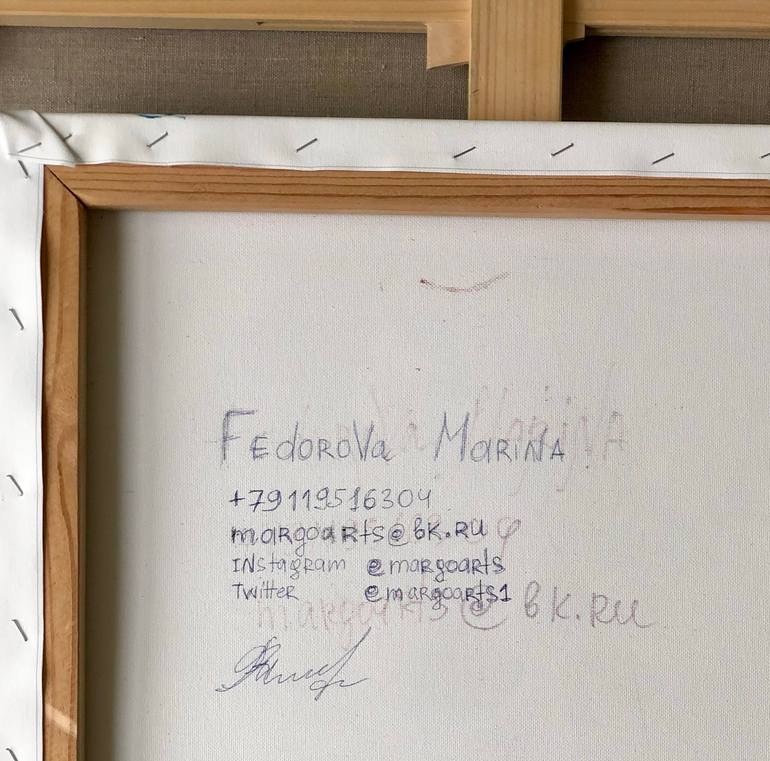 FEdoROVa MaRiNA
+79119516304
margoarts@bk.RU
INstagram @margoarts
Twitter @margoarts1
margoarts@bk.RU